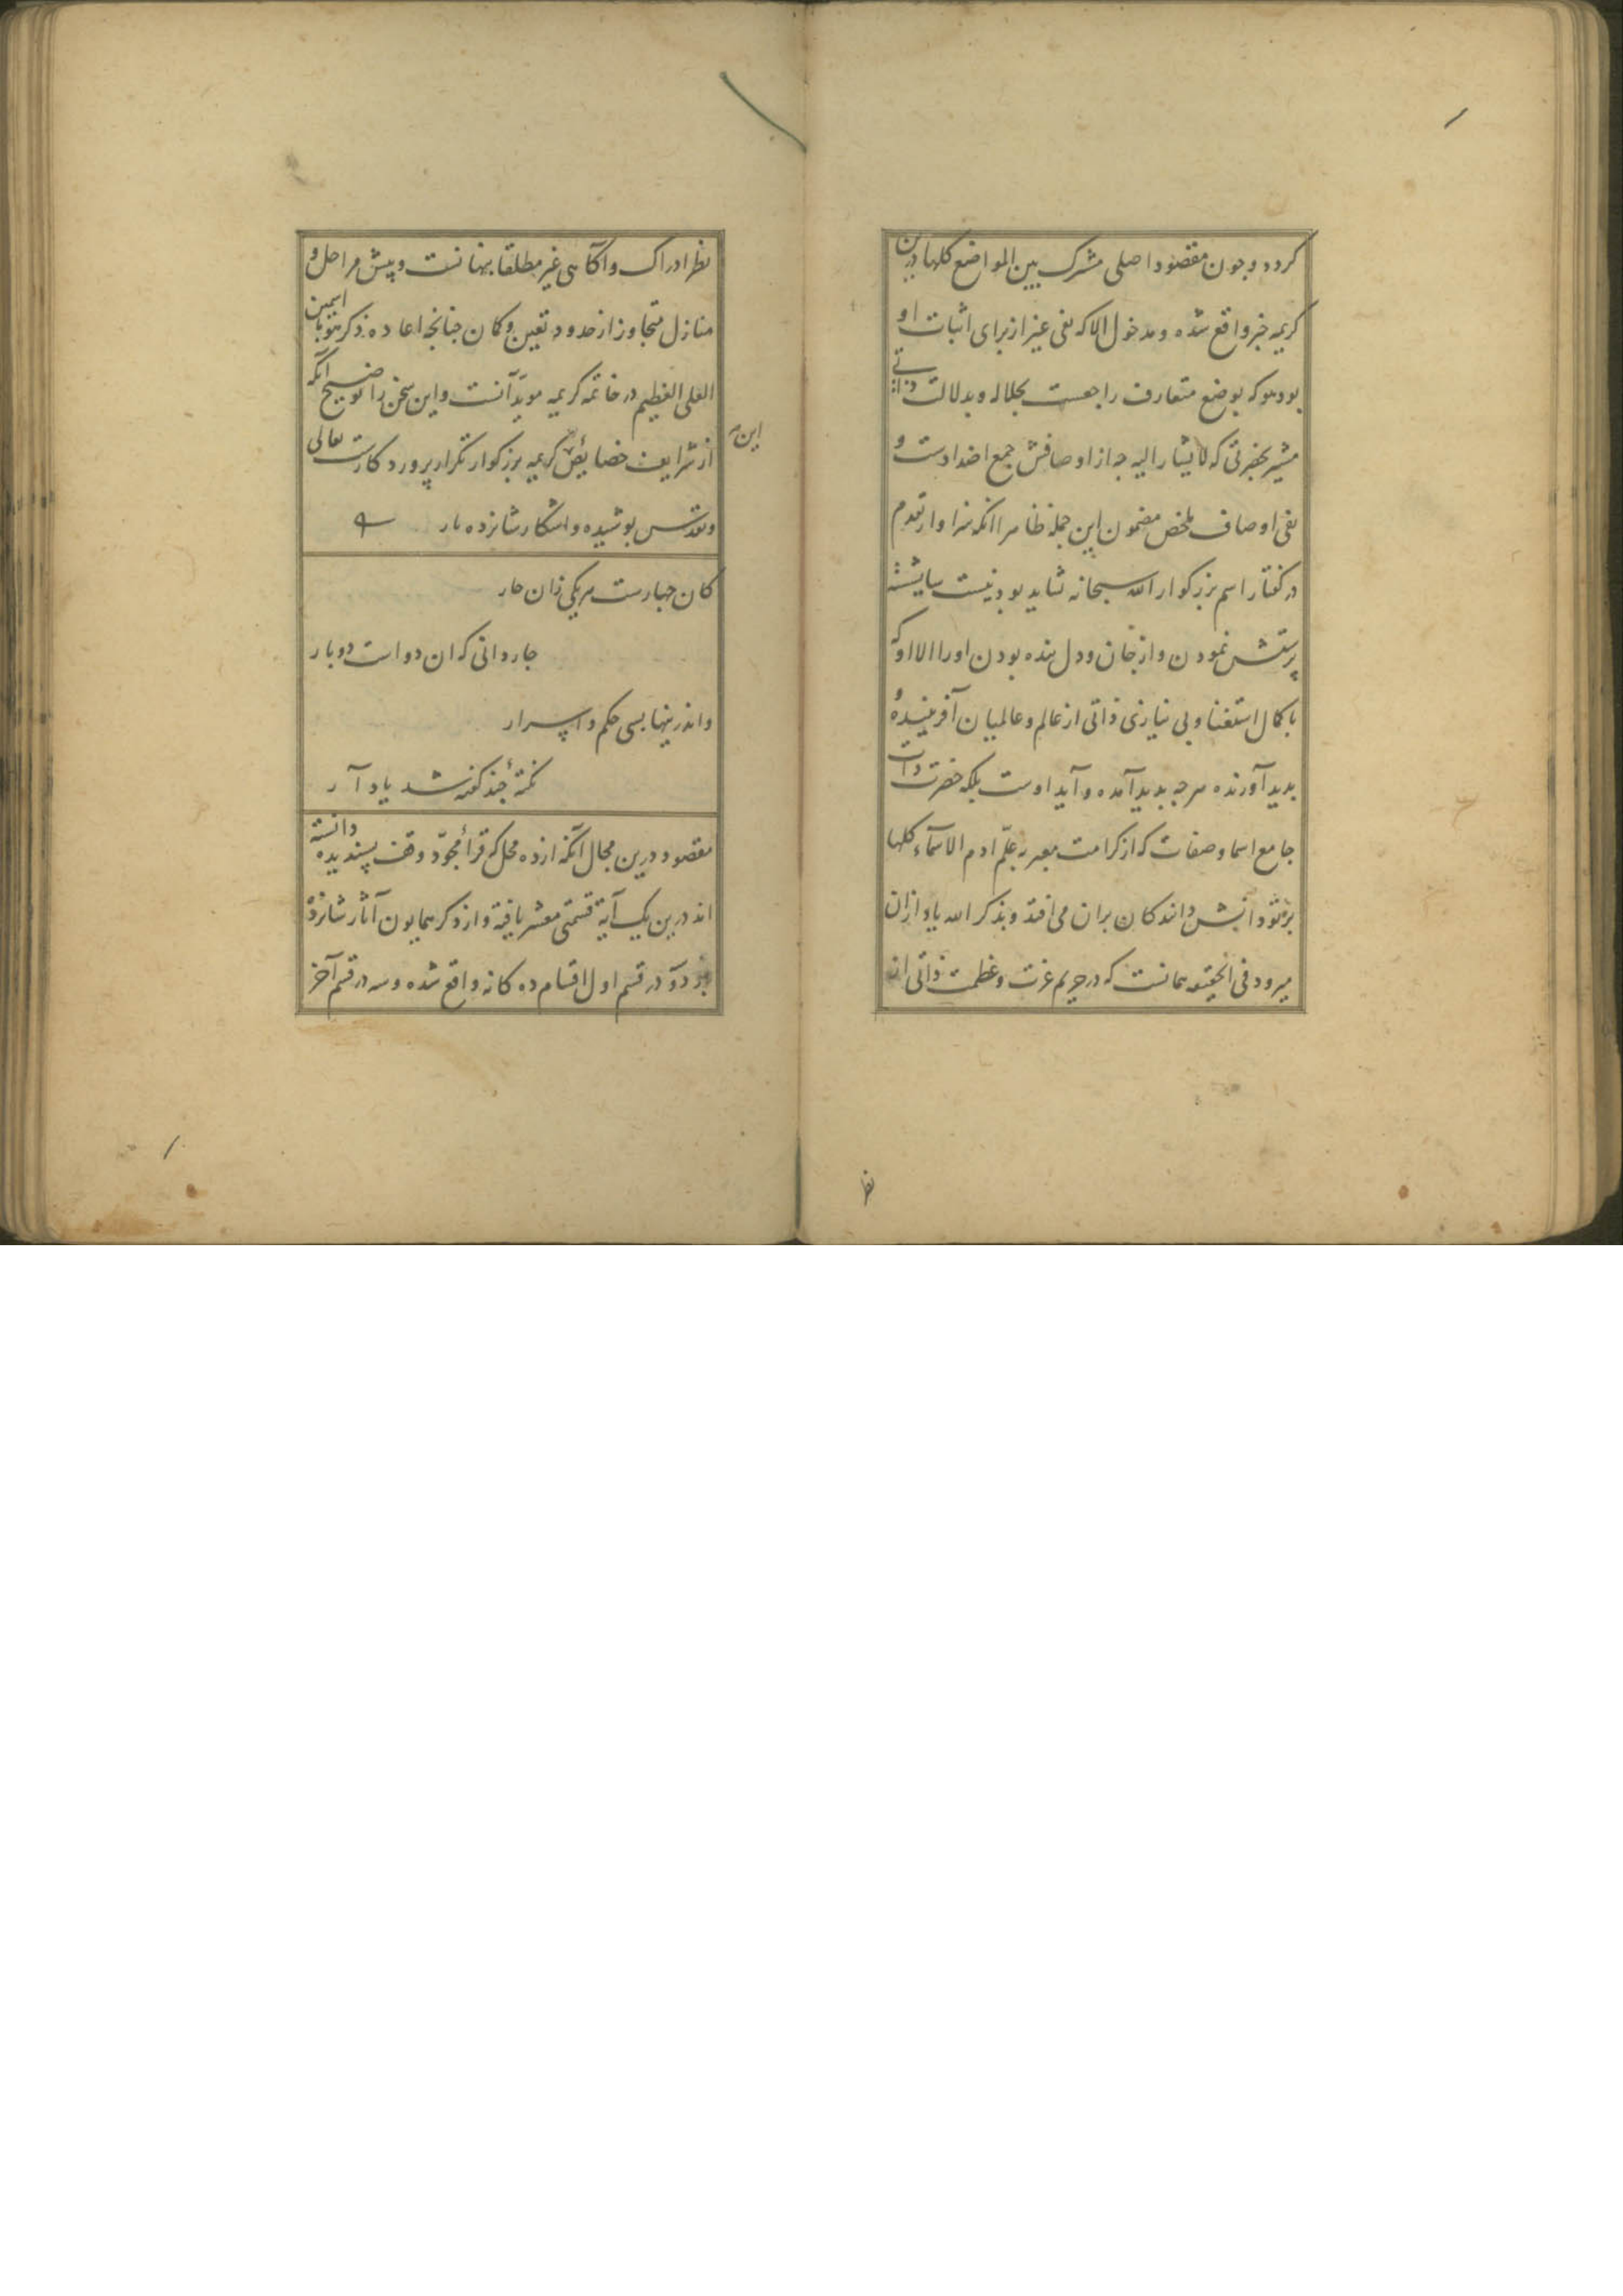 کردد وجون مقصود اصلی مشترک بین المواضع کلها درین
کریمه خبر واقع شده و مدخول الا که نفی غیر از برای اثبات او
بود هو که بوضع متعارف راجعست بجلاله و بدلالت ذاتی
مشیر بحضرتی که لا یشار الیه جه از اوصافش جمع اضدادست و
نفی اوصاف ملخص مضمون این جمله ظاهرا انکه سزاوار تقدم
در کفتار اسم بزرکوار الله سبحانه شاید بود نیست شایسته
پرستش نمودن و از جان و دل بنده بودن اورا الا او که
با کمال استغنا و بی نیازی ذاتی از عالم و عالمیان آفریننده و
بدید آورنده هرجه بدید آمده و آید اوست بلکه حضرت ذات
جامع اسما و صفات که از کرامت معبر به علّم ادم الاسمآء کلها
دانش دانندکان بران می افتد و بذکر الله یاد ازان
میرود فی الحقیقه همانست که در حریم عزت و عظمت ذاتی از
نظر
نظر ادراک و آکاهی غیر مطلقا بنهانست و پیش مراحل و
منازل متجاوز از حدود تعین و کمان جنانجه اعاده ذکر هو با اسمین
العلی العظیم در خاتمه کریمه موید آنست و این سخن را توضیح آنکه
این
از شرایف خصایص کریمه بزرکوار تکرار پروردکارست تعالی
وتقدس بوشیده و اشکار شانزده بار
کان جهارست هریکی زان جار
جاروانی که ان دو است دو بار
واندرینها بسی حکم و اسرار
نکتۀ جند کفته شد یاد آر
مقصود درین مجال آنکه از ده محل که قرأ مجوّد وقف پسندیده دانسته
اند درین یک آیة قسمتی معشر یافته و از ذکر همایون آثار شانزده
دو در قسم اول اقسام ده کانه واقع شده و سه در قسم آخر